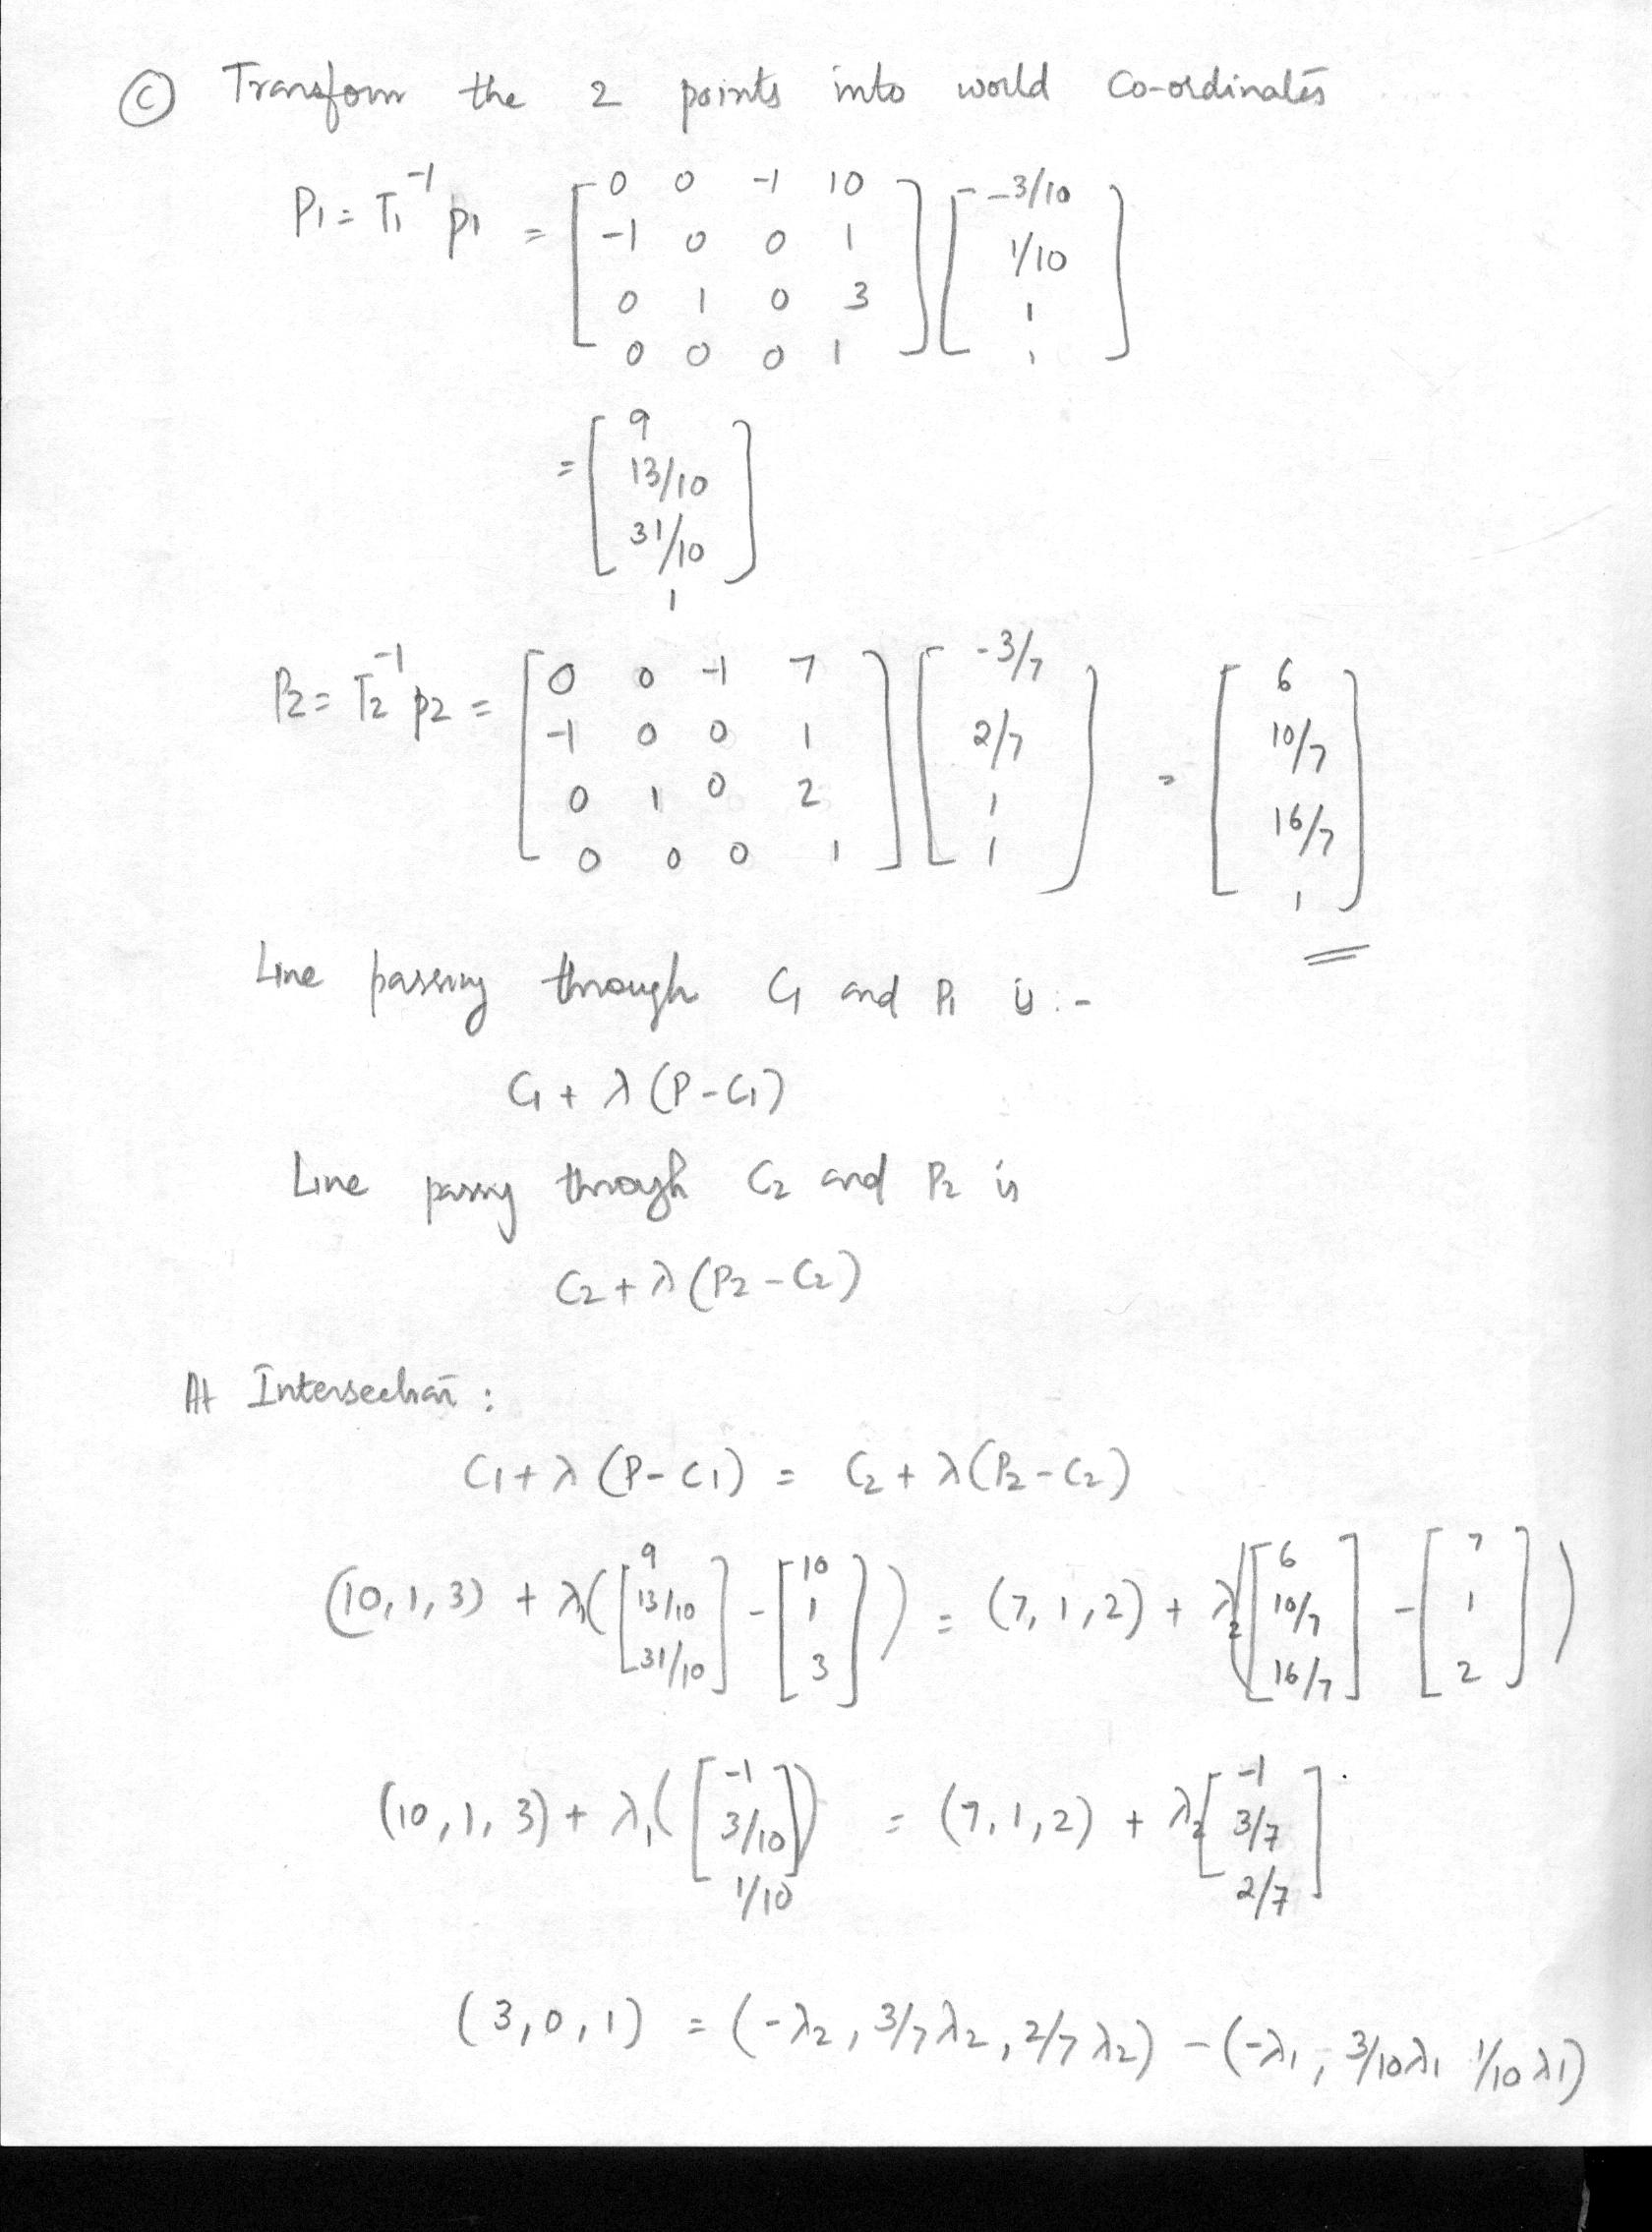 (c) Transform the 2 points into world Co-ordinates
P1 = T1^-1 p1 = [0 0 -1 10; -1 0 0 1; 0 1 0 3; 0 0 0 1] [-3/10; 1/10; 1; 1]
= [9; 13/10; 31/10; 1]
P2 = T2^-1 p2 = [0 0 -1 7; -1 0 0 1; 0 1 0 2; 0 0 0 1] [-3/7; 2/7; 1; 1] = [6; 10/7; 16/7; 1]
Line passing through C1 and P1 is :-
C1 + λ (P - C1)
Line passing through C2 and P2 is
C2 + λ (P2 - C2)
At Intersection :
C1 + λ (P - C1) = C2 + λ (P2 - C2)
(10, 1, 3) + λ1 ([9; 13/10; 31/10] - [10; 1; 3]) = (7, 1, 2) + λ2 ([6; 10/7; 16/7] - [7; 1; 2])
(10, 1, 3) + λ1 ([-1; 3/10; 1/10]) = (7, 1, 2) + λ2 [-1; 3/7; 2/7]
(3, 0, 1) = (-λ2, 3/7 λ2, 2/7 λ2) - (-λ1, 3/10 λ1 1/10 λ1)